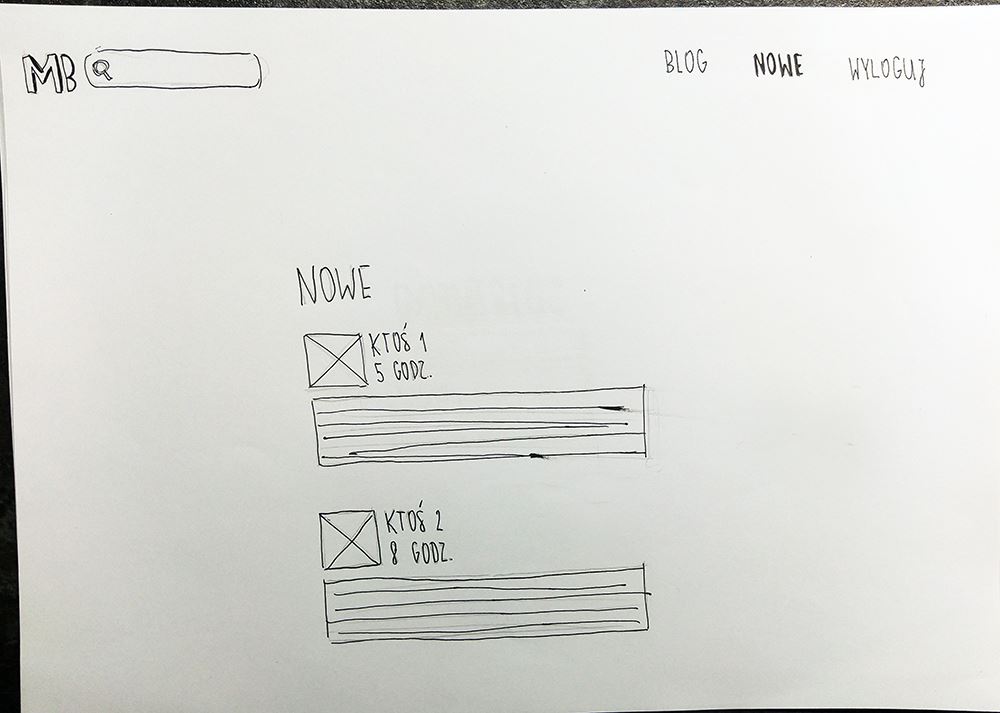 MB
BLOG NOWE WYLOGUJ
NOWE
KTOŚ 1
5 GODZ.
KTOŚ 2
8 GODZ.